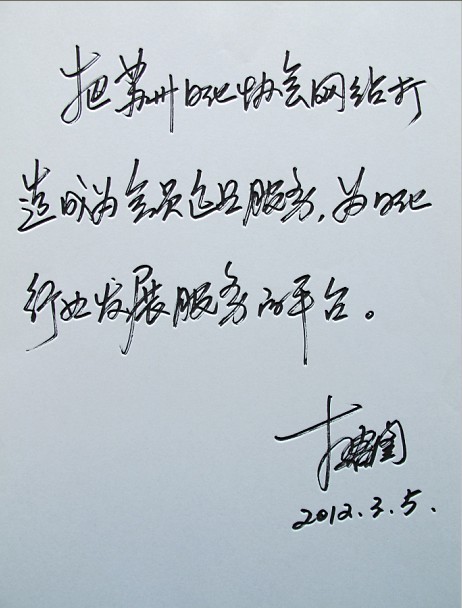 把苏州日化协会网站打
造成为会员企业服务,为日化
行业发展服务的平台。
2012.3.5.